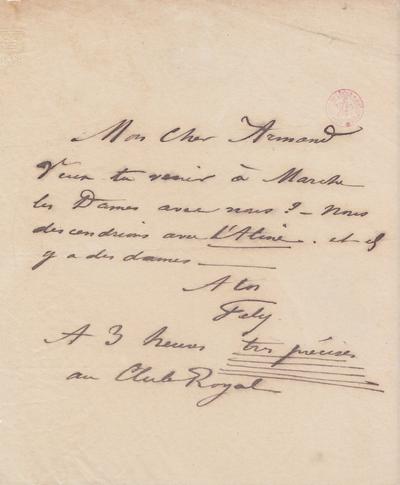 Mon Cher Armand
Veux tu venir à Marche
les Dames avec nous ? – Nous
descendrions avec L'Aline. et il
y a des dames
A toi
Fély
A 3 heures très précises
au Club Royal